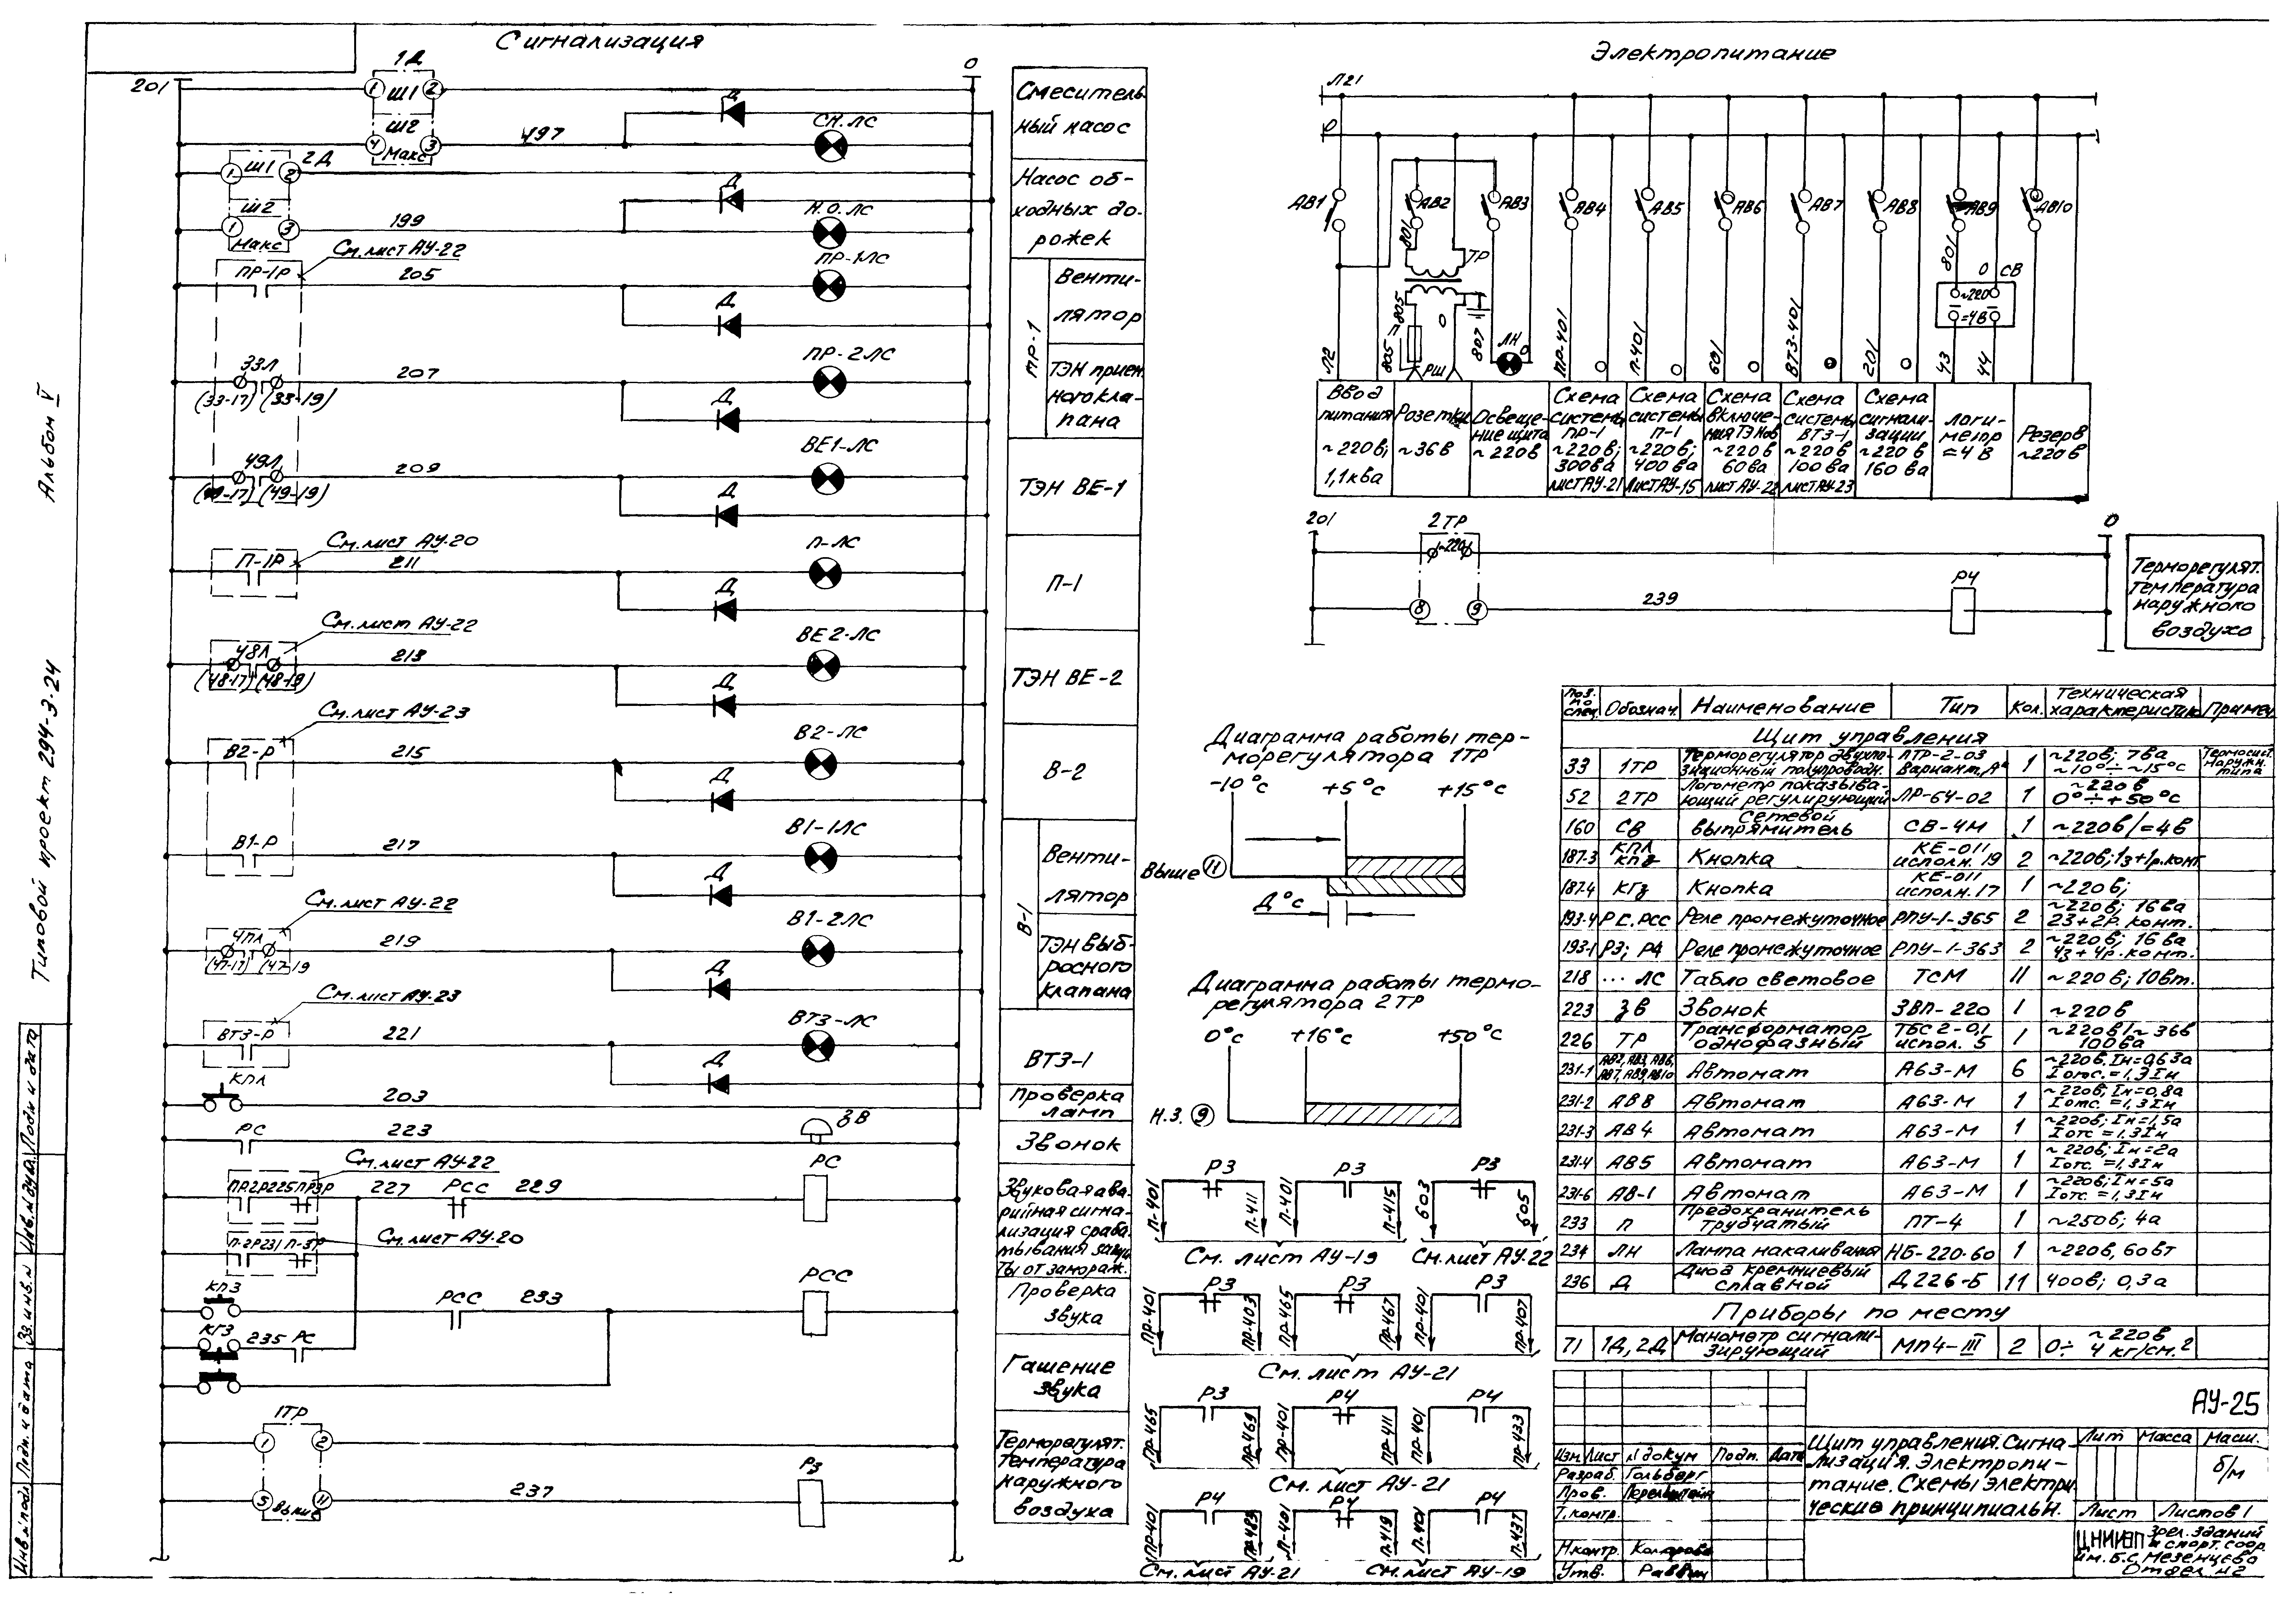 Сигнализация
201
1Д
0
1
Ш1
2
Ш2
4
Макс
3
497
Д
СН.ЛС
Смеситель-
ный насос
Ш1
2Д
1
2
Ш2
1
3
Макс
199
Д
Н.О.ЛС
Насос об-
ходных до-
рожек
См. лист АУ-22
ПР-1Р
205
ПР-1ЛС
Д
Венти-
лятор
33Л
(33-17) (33-19)
207
ПР-2ЛС
Д
ТЭН прием.
ного кла-
пана
49Л
(49-19)
209
ВЕ1-ЛС
Д
ТЭН ВЕ-1
См. лист АУ-20
П-1Р
211
П-ЛС
Д
П-1
См. лист АУ-22
48Л
(48-17) (48-19)
213
ВЕ2-ЛС
Д
ТЭН ВЕ-2
См. лист АУ-23
В2-Р
215
В2-ЛС
Д
В-2
В1-Р
217
В1-1ЛС
Д
В-1
Венти-
лятор
См. лист АУ-22
(47-17) (47-19
219
В1-2ЛС
Д
ТЭН выб-
росного
клапана
См. лист АУ-23
ВТЗ-Р
221
ВТЗ-ЛС
Д
ВТЗ-1
КПЛ
203
Проверка
ламп
РС
223
ЗВ
Звонок
См. лист АУ-22
ПР2Р 225 ПР3Р
227
РСС
229
РС
Звуковая ава-
рийная сигна-
лизация сраба-
тывания защи-
ты от замораж.
П-2Р 231 П-3Р
См. лист АУ-20
КПЗ
РСС
233
РСС
Проверка
звука
КГЗ
235 РС
Гашение
звука
1ТР
1
2
5
11
Выше
237
Р3
Терморегулят.
температура
наружного
воздуха
Электропитание
Л21
0
АВ1
АВ2
АВ3
АВ4
АВ5
АВ6
АВ7
АВ8
АВ9
АВ10
801
ТР
801
0
СВ
~220
=4В
805
П
805
0
РШ
807
ЛН
0
Л2
ПР-401
П-401
601
ВТЗ-401
201
43
44
Ввод
питания
~220в;
1,1ква
Розетки
~36в
Освеще-
ние щита
~220в
Схема
системы
ПР-1
~220в;
300ва
лист АУ-21
Схема
системы
П-1
~220в;
400ва
лист АУ-15
Схема
включе-
ния ТЭНов
~220в
60ва
лист АУ-22
Схема
системы
ВТЗ-1
~220в
100ва
лист АУ-23
Схема
сигнали-
зации
~220в
160ва
Логи-
метр
=4В
Резерв
~220в
201
2ТР
0
~220
8
9
239
Р4
Терморегулят.
температура
наружного
воздуха
Диаграмма работы тер-
морегулятора 1ТР
-10°с
+5°с
+15°с
Выше 11
Д°с
Диаграмма работы термо-
регулятора 2ТР
0°с
+16°с
+50°с
Н.З. 9
Р3
П-401
П-411
Р3
П-401
П-415
Р3
603
605
См. лист АУ-19
См. лист АУ-22
Р3
ПР-401
ПР-403
Р3
ПР-465
ПР-467
Р3
ПР-401
ПР-407
См. лист АУ-21
Р3
ПР-465
ПР-469
Р4
ПР-401
ПР-411
Р4
ПР-401
ПР-433
См. лист АУ-21
Р4
ПР-401
ПР-483
Р4
П-401
П-419
Р4
П-401
П-437
См. лист АУ-21
См. лист АУ-19
Поз. по спец. Обознач. Наименование Тип Кол. Техническая характеристика Примеч
Щит управления
33 1ТР Терморегулятор двухпо-зиционный полупроводн. ПТР-2-03 Вариант „А“ 1 ~220в; 7ва ~10°÷~15°с Термосист. наружн. типа
52 2ТР Логометр показыва-ющий регулирующий ЛР-64-02 1 ~220в 0°÷+50°с
160 СВ Сетевой выпрямитель СВ-4М 1 ~220в/=4в
187-3 КПЛ КПЗ Кнопка КЕ-011 исполн. 19 2 ~220в; 1з+1р.конт
187-4 КГЗ Кнопка КЕ-011 исполн. 17 1 ~220в;
193-4 РС. РСС Реле промежуточное РПУ-1-365 2 ~220в; 16ва 2з+2р. конт.
193-1 Р3; Р4 Реле промежуточное РПУ-1-363 2 ~220в; 16ва 4з+4р. конт.
218 ... ЛС Табло световое ТСМ 11 ~220в; 10вт.
223 ЗВ Звонок ЗВП-220 1 ~220в
226 ТР Трансформатор однофазный ТБС2-0,1 испол. 5 1 ~220в/~36в 100ва
231-1 АВ2, АВ3, АВ6, АВ7, АВ9, АВ10 Автомат А63-М 6 ~220в. Iн=0,63а Iотс.=1,3Iн
231-2 АВ8 Автомат А63-М 1 ~220в; Iн=0,8а Iотс.=1,3Iн
231-3 АВ4 Автомат А63-М 1 ~220в; Iн=1,5а Iотс=1,3Iн
231-4 АВ5 Автомат А63-М 1 ~220в; Iн=2а Iотс.=1,3Iн
231-6 АВ-1 Автомат А63-М 1 ~220в; Iн=5а Iотс.=1,3Iн
233 П Предохранитель трубчатый ПТ-4 1 ~250в; 4а
234 ЛН Лампа накаливания НБ-220-60 1 ~220в, 60вт
236 Д Диод кремниевый сплавной Д226-Б 11 400в; 0,3а
Приборы по месту
71 1Д, 2Д Манометр сигнали-зирующий МП4-III 2 ~220в 0÷4 кг/см.2
АУ-25
Изм Лист № докум Подп. Дата
Разраб. Гольберг
Пров.
Т. контр.
Н.контр.
Утв. Раввин
Щит управления. Сигна-
лизация. Электропи-
тание. Схемы электри
ческие принципиальн.
Лит Масса Масш.
б/м
Лист Листов 1
ЦНИИЭП зрел. зданий
и спорт. соор.
им. Б.С. Мезенцева
Отдел №2
Альбом V
Типовой проект 294-3-24
Инв. № подл Подп. и дата Вз. инв. № Инв. № дубл. Подп и дата